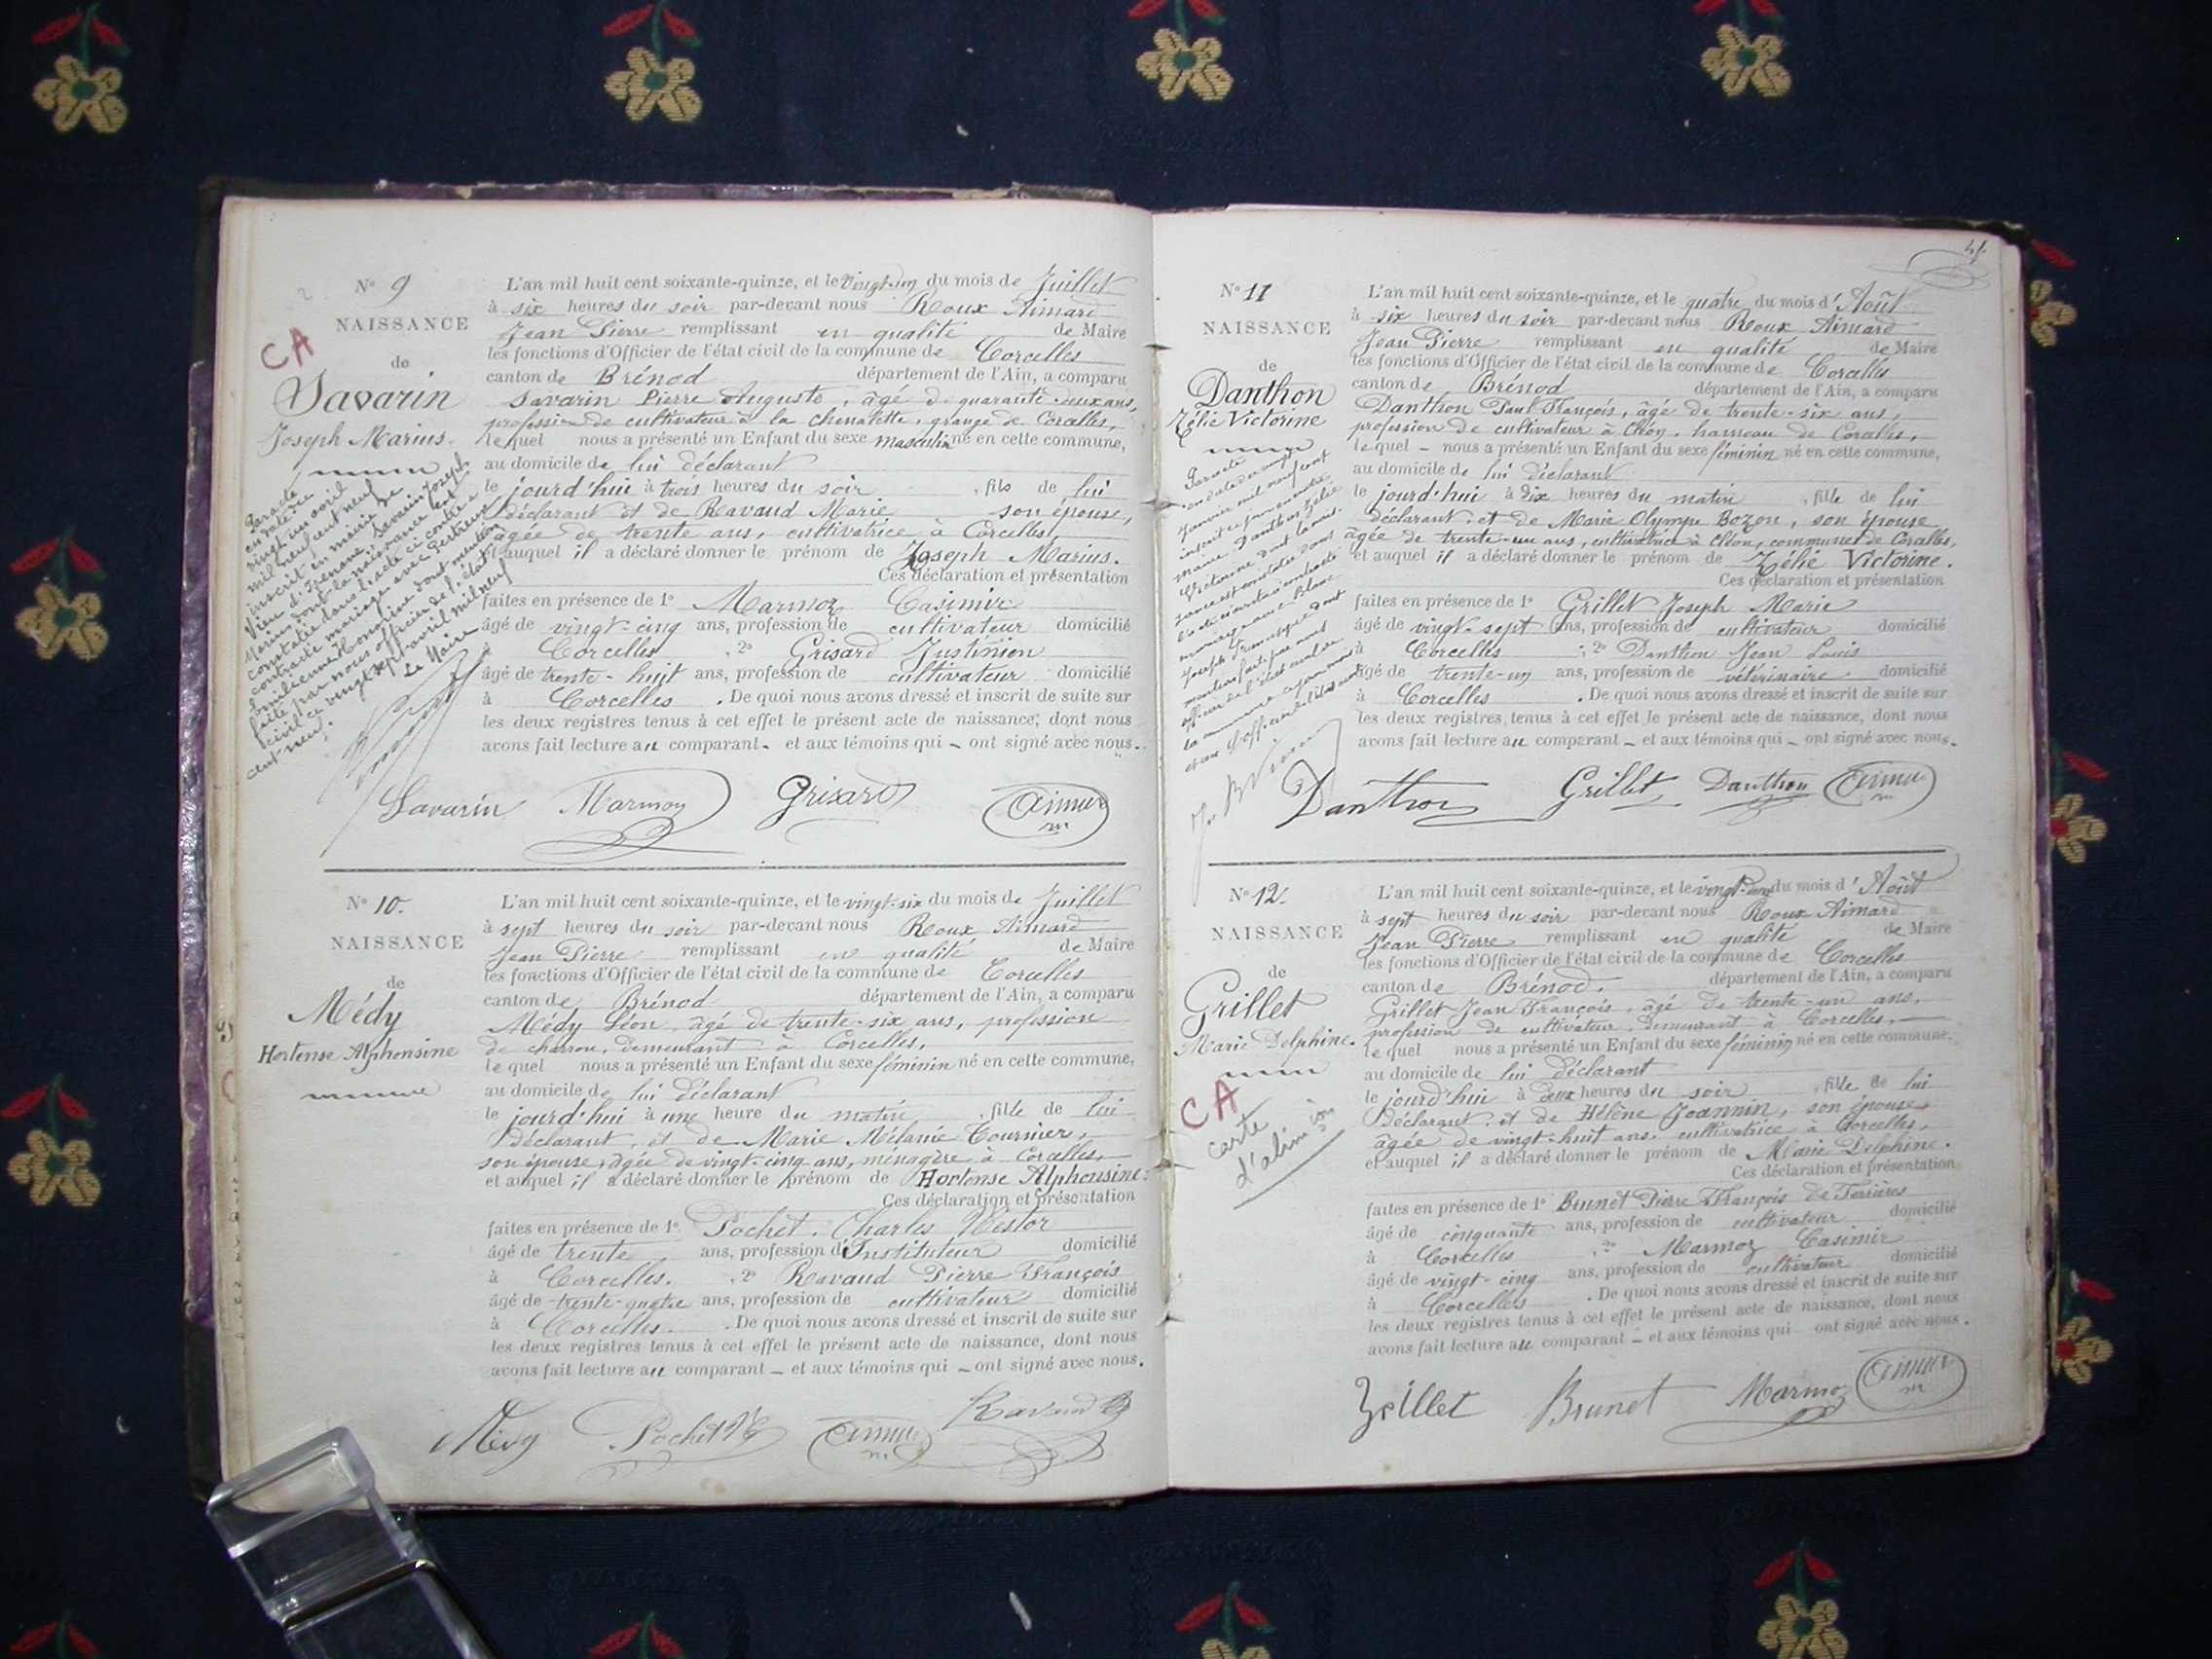 N° 9
NAISSANCE
CA
de
Savarin
Joseph Marius.
Par acte
en date du
vingt un avril
mil neuf cent neuf
inscrit en mairie de
Vieu d'Izenave, Savarin Joseph
Marius dont la naissance est
constatée dans l'acte ci contre a
contracté mariage avec
faite par nous officier de l'état
civil ce vingt sept avril mil neuf
cent neuf.
Le Maire
L'an mil huit cent soixante-quinze, et le vingt-un du mois de Juillet
à six heures du soir par-devant nous Roux Aimard
Jean Pierre remplissant en qualité de Maire
les fonctions d'Officier de l'état civil de la commune de Corcelles
canton de Brénod département de l'Ain, a comparu
Savarin Pierre Auguste, âgé de quarante-deux ans,
profession de cultivateur à la grange de Corcelles,
lequel nous a présenté un Enfant du sexe masculin né en cette commune,
au domicile de lui déclarant
le jourd'hui à trois heures du soir, fils de lui
déclarant et de Ravaud Marie son épouse,
âgée de trente ans, cultivatrice à Corcelles,
et auquel il a déclaré donner le prénom de Joseph Marius.
Ces déclaration et présentation
faites en présence de 1° Marmoz Casimir
âgé de vingt-cinq ans, profession de cultivateur domicilié
à Corcelles, 2° Grisard Justinien
âgé de trente-huit ans, profession de cultivateur domicilié
à Corcelles. De quoi nous avons dressé et inscrit de suite sur
les deux registres tenus à cet effet le présent acte de naissance, dont nous
avons fait lecture au comparant - et aux témoins qui - ont signé avec nous.
Savarin Marmoz Grisard Aimar
N° 10.
NAISSANCE
de
Médy
Hortense Alphonsine
L'an mil huit cent soixante-quinze, et le vingt-six du mois de Juillet
à sept heures du soir par-devant nous Roux Aimard
Jean Pierre remplissant en qualité de Maire
les fonctions d'Officier de l'état civil de la commune de Corcelles
canton de Brénod département de l'Ain, a comparu
Médy Léon, âgé de trente-six ans, profession
de charron, demeurant à Corcelles,
lequel nous a présenté un Enfant du sexe féminin né en cette commune,
au domicile de lui déclarant
le jourd'hui à une heure du matin, fille de lui
déclarant, et de Marie Mélanie Tournier,
son épouse, âgée de vingt-cinq ans, ménagère à Corcelles,
et auquel il a déclaré donner le prénom de Hortense Alphonsine.
Ces déclaration et présentation
faites en présence de 1° Pochet Charles Nestor
âgé de trente ans, profession d'Instituteur domicilié
à Corcelles. , 2° Ravaud Pierre François
âgé de trente-quatre ans, profession de cultivateur domicilié
à Corcelles. De quoi nous avons dressé et inscrit de suite sur
les deux registres tenus à cet effet le présent acte de naissance, dont nous
avons fait lecture au comparant - et aux témoins qui - ont signé avec nous.
Médy Pochet Aimar Ravaud
N° 11
NAISSANCE
de
Danthon
Zélie Victorine
Par acte
en date du vingt
janvier mil neuf cent
inscrit
mairie, Danthon Zélie
Victorine dont la nais-
sance est constatée dans
l'acte ci contre a contracté
mariage avec Blanc
Joseph dont
mention faite par nous
officier de l'état civil de
la commune
L'officier de l'état civil
L'an mil huit cent soixante-quinze, et le quatre du mois d'Août
à six heures du soir par-devant nous Roux Aimard
Jean Pierre remplissant en qualité de Maire
les fonctions d'Officier de l'état civil de la commune de Corcelles
canton de Brénod département de l'Ain, a comparu
Danthon Paul François, âgé de trente-six ans,
profession de cultivateur à Cléon, hameau de Corcelles,
lequel - nous a présenté un Enfant du sexe féminin né en cette commune,
au domicile de lui déclarant
le jourd'hui à dix heures du matin, fille de lui
déclarant, et de Marie Olympe Bozon, son épouse
âgée de trente-un ans, cultivatrice à Cléon, commune de Corcelles,
et auquel il a déclaré donner le prénom de Zélie Victorine.
Ces déclaration et présentation
faites en présence de 1° Grillet Joseph Marie
âgé de vingt-sept ans, profession de cultivateur domicilié
à Corcelles ; 2° Danthon Jean Louis
âgé de trente-un ans, profession de vétérinaire domicilié
à Corcelles. De quoi nous avons dressé et inscrit de suite sur
les deux registres tenus à cet effet le présent acte de naissance, dont nous
avons fait lecture au comparant - et aux témoins qui - ont signé avec nous.
Danthon Grillet Danthon Aimar
N° 12.
NAISSANCE
de
Grillet
Marie Delphine.
CA
carte
d'alim ion
L'an mil huit cent soixante-quinze, et le du mois d'Août
à sept heures du soir par-devant nous Roux Aimard
Jean Pierre remplissant en qualité de Maire
les fonctions d'Officier de l'état civil de la commune de Corcelles
canton de Brénod. département de l'Ain, a comparu
Grillet Jean François, âgé de trente-un ans,
profession de cultivateur, demeurant à Corcelles,
lequel nous a présenté un Enfant du sexe féminin né en cette commune,
au domicile de lui déclarant
le jourd'hui à deux heures du soir, fille de lui
déclarant, et de Hélène Joannin, son épouse,
âgée de vingt-huit ans, cultivatrice à Corcelles,
et auquel il a déclaré donner le prénom de Marie Delphine.
Ces déclaration et présentation
faites en présence de 1° Brunet Pierre François de Ferrières
âgé de cinquante ans, profession de cultivateur domicilié
à Corcelles, 2° Marmoz Casimir
âgé de vingt-cinq ans, profession de cultivateur domicilié
à Corcelles. De quoi nous avons dressé et inscrit de suite sur
les deux registres tenus à cet effet le présent acte de naissance, dont nous
avons fait lecture au comparant - et aux témoins qui ont signé avec nous.
Grillet Brunet Marmoz Aimar